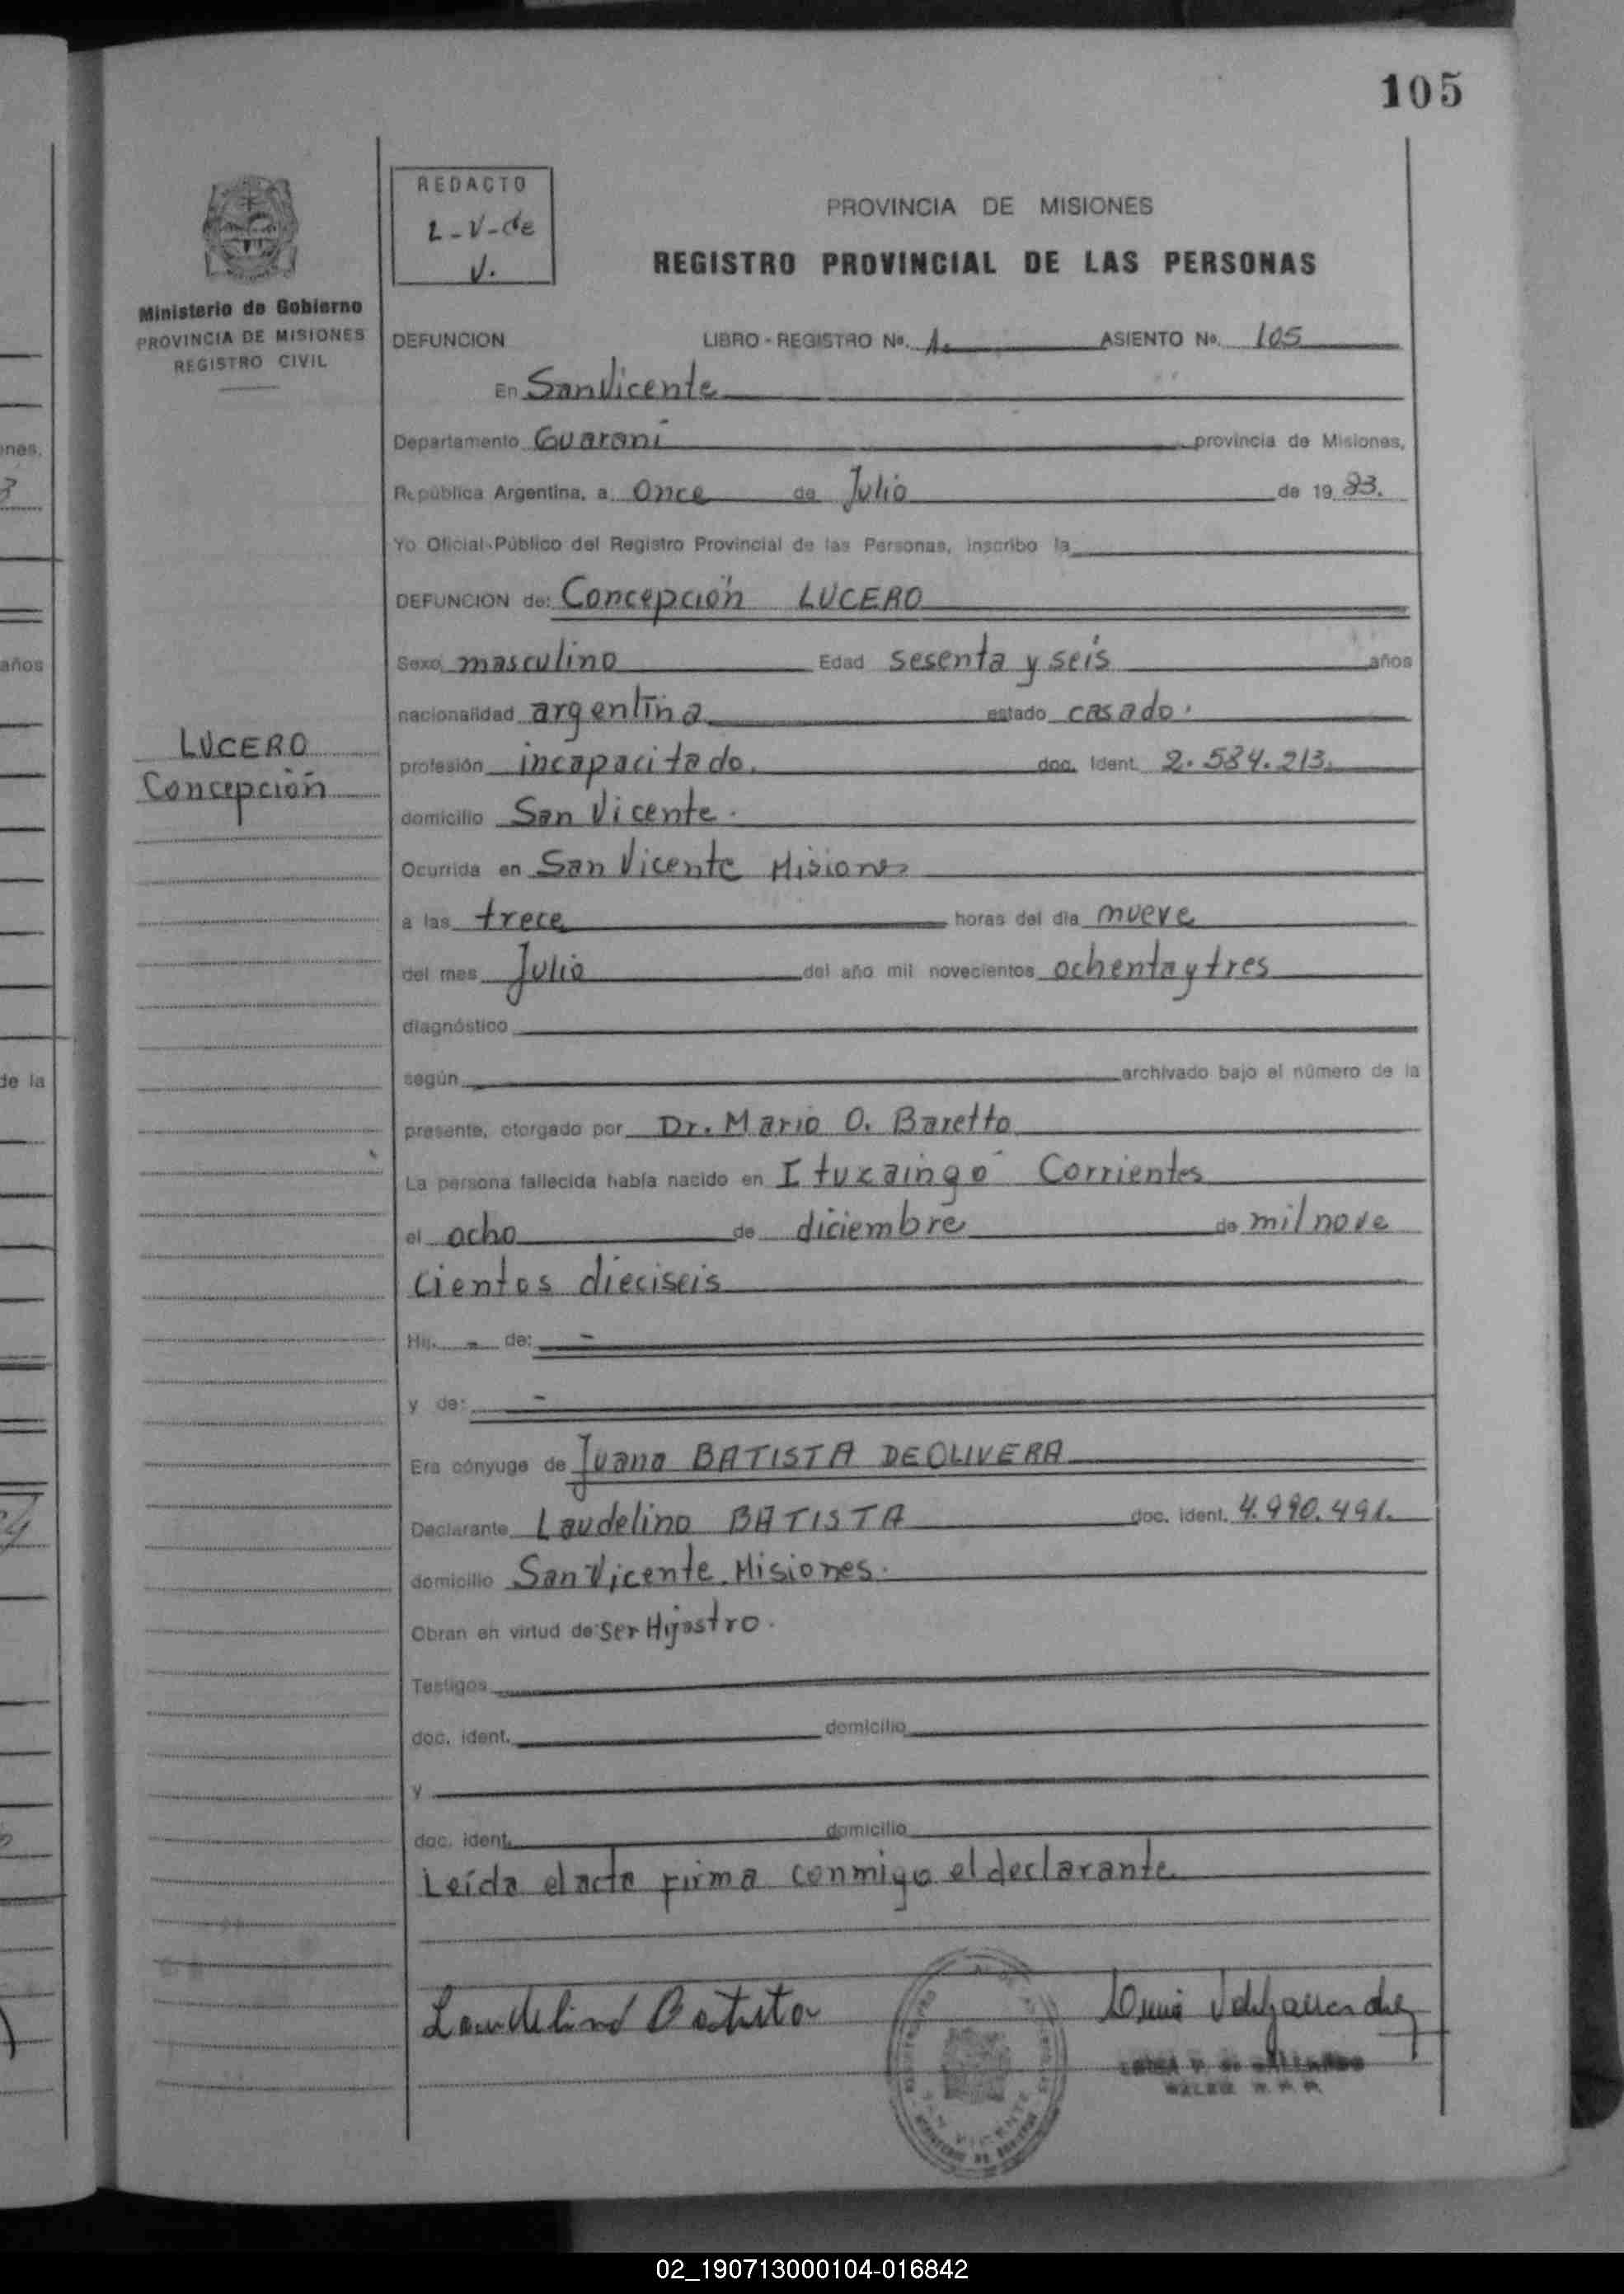 105
REDACTO
L-V-de
V.
PROVINCIA DE MISIONES
REGISTRO PROVINCIAL DE LAS PERSONAS
Ministerio de Gobierno
PROVINCIA DE MISIONES
REGISTRO CIVIL
DEFUNCION LIBRO - REGISTRO No. 1. ASIENTO No. 105
En San Vicente
Departamento Guaraní provincia de Misiones,
República Argentina, a once de Julio de 19 83.
Yo Oficial Público del Registro Provincial de las Personas, inscribo la
DEFUNCION de: Concepción LUCERO
Sexo masculino Edad sesenta y seis años
nacionalidad argentina estado casado.
LUCERO
Concepción
profesión incapacitado. doc. Ident. 2.584.213.
domicilio San Vicente.
Ocurrida en San Vicente Misiones
a las trece horas del día nueve
del mes Julio del año mil novecientos ochenta y tres
diagnóstico
según archivado bajo el número de la
presente, otorgado por Dr. Mario O. Baretto
La persona fallecida había nacido en Ituzaingó Corrientes
el ocho de diciembre de mil nove
cientos dieciseis
Hij. - de: -
y de: -
Era cónyuge de Juana BATISTA DE OLIVERA
Declarante Laudelino BATISTA doc. ident. 4.990.491.
domicilio San Vicente Misiones.
Obran en virtud de ser Hijastro.
Testigos
doc. ident. domicilio
y
doc. ident. domicilio
Leída el acta firma conmigo el declarante
Laudelino Batista
nes,
años
de la
02_190713000104-016842